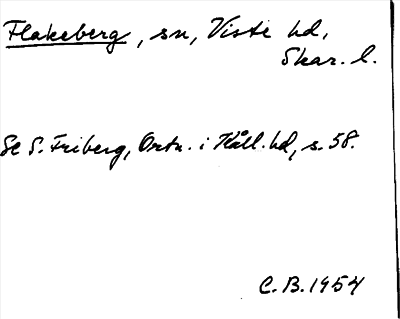 Flakeberg, sn, Viste hd,
Skar. l.
Se S. Friberg, Ortn. i Kåll. hd, s. 58.
C.B. 1954